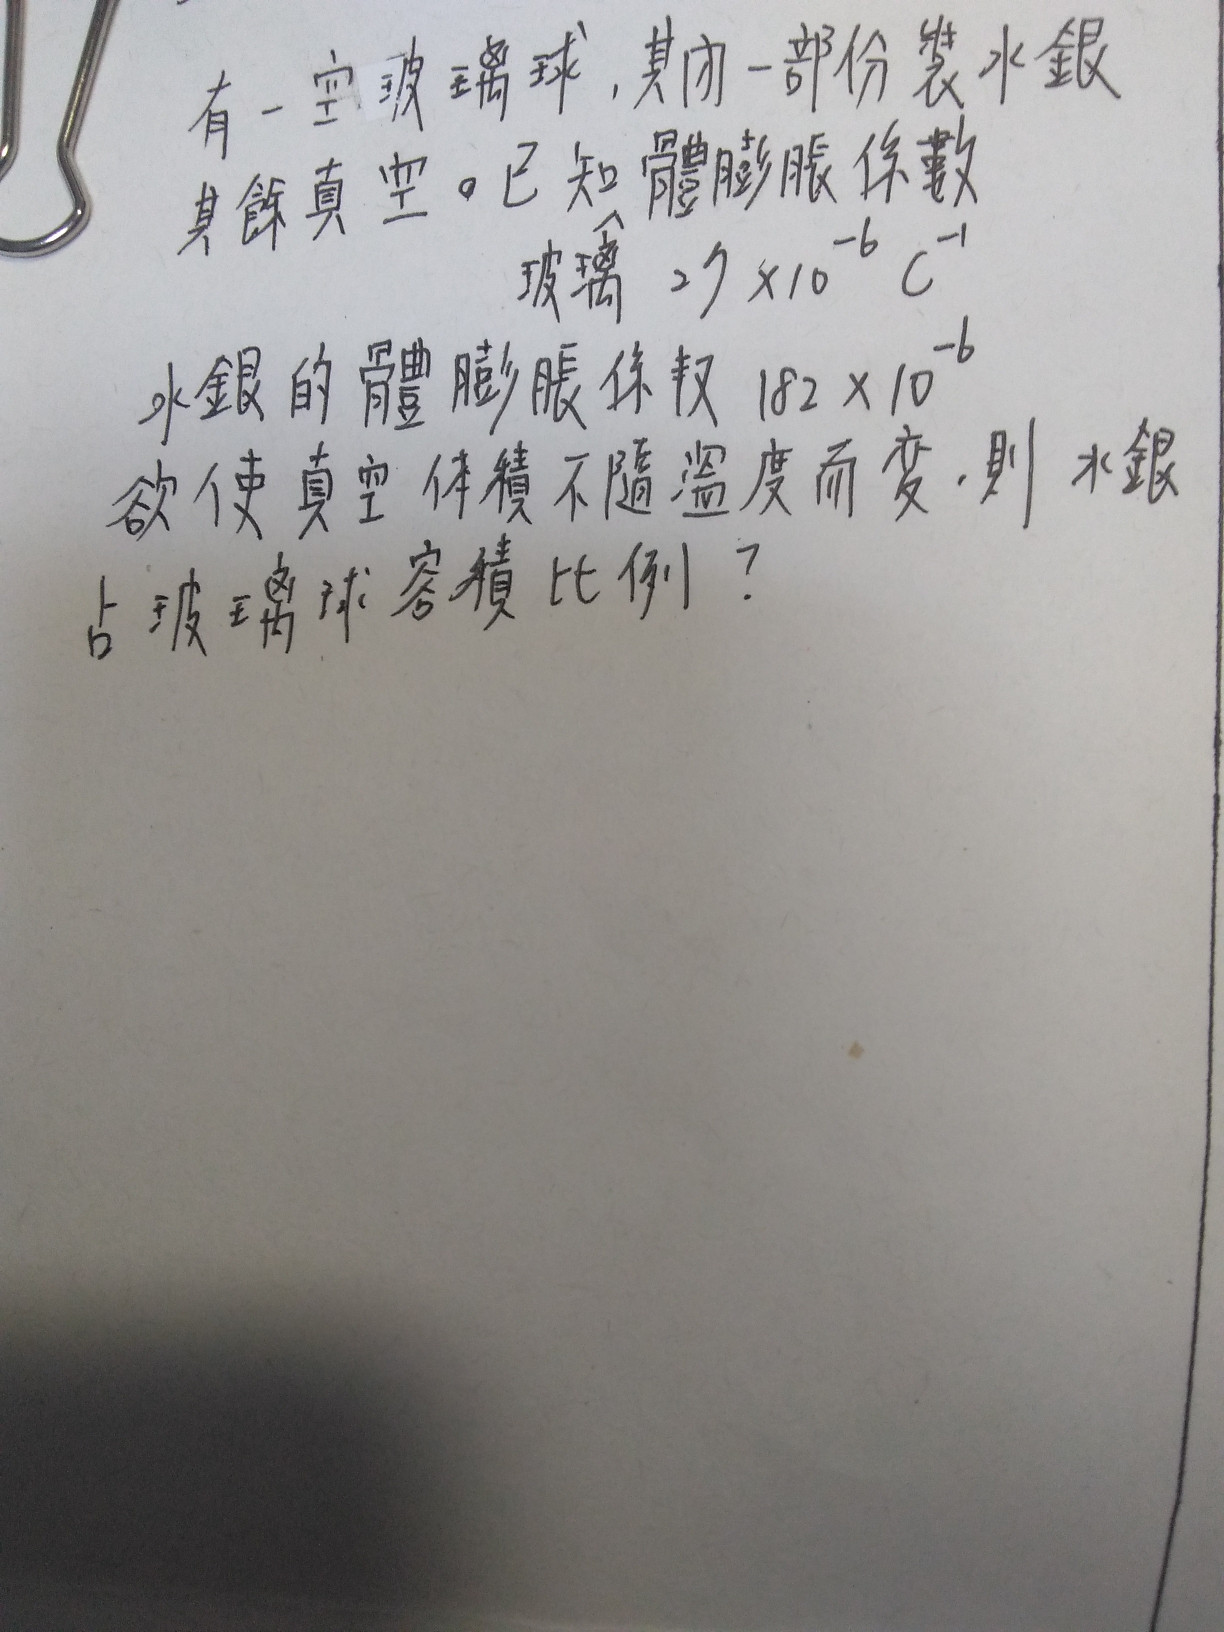 有一空玻璃球,其內一部份裝水銀
其餘真空。已知體膨脹係數
玻璃 27×10⁻⁶ C⁻¹
水銀的體膨脹係数 182×10⁻⁶
欲使真空体積不隨溫度而変,則水銀
占玻璃球容積比例?